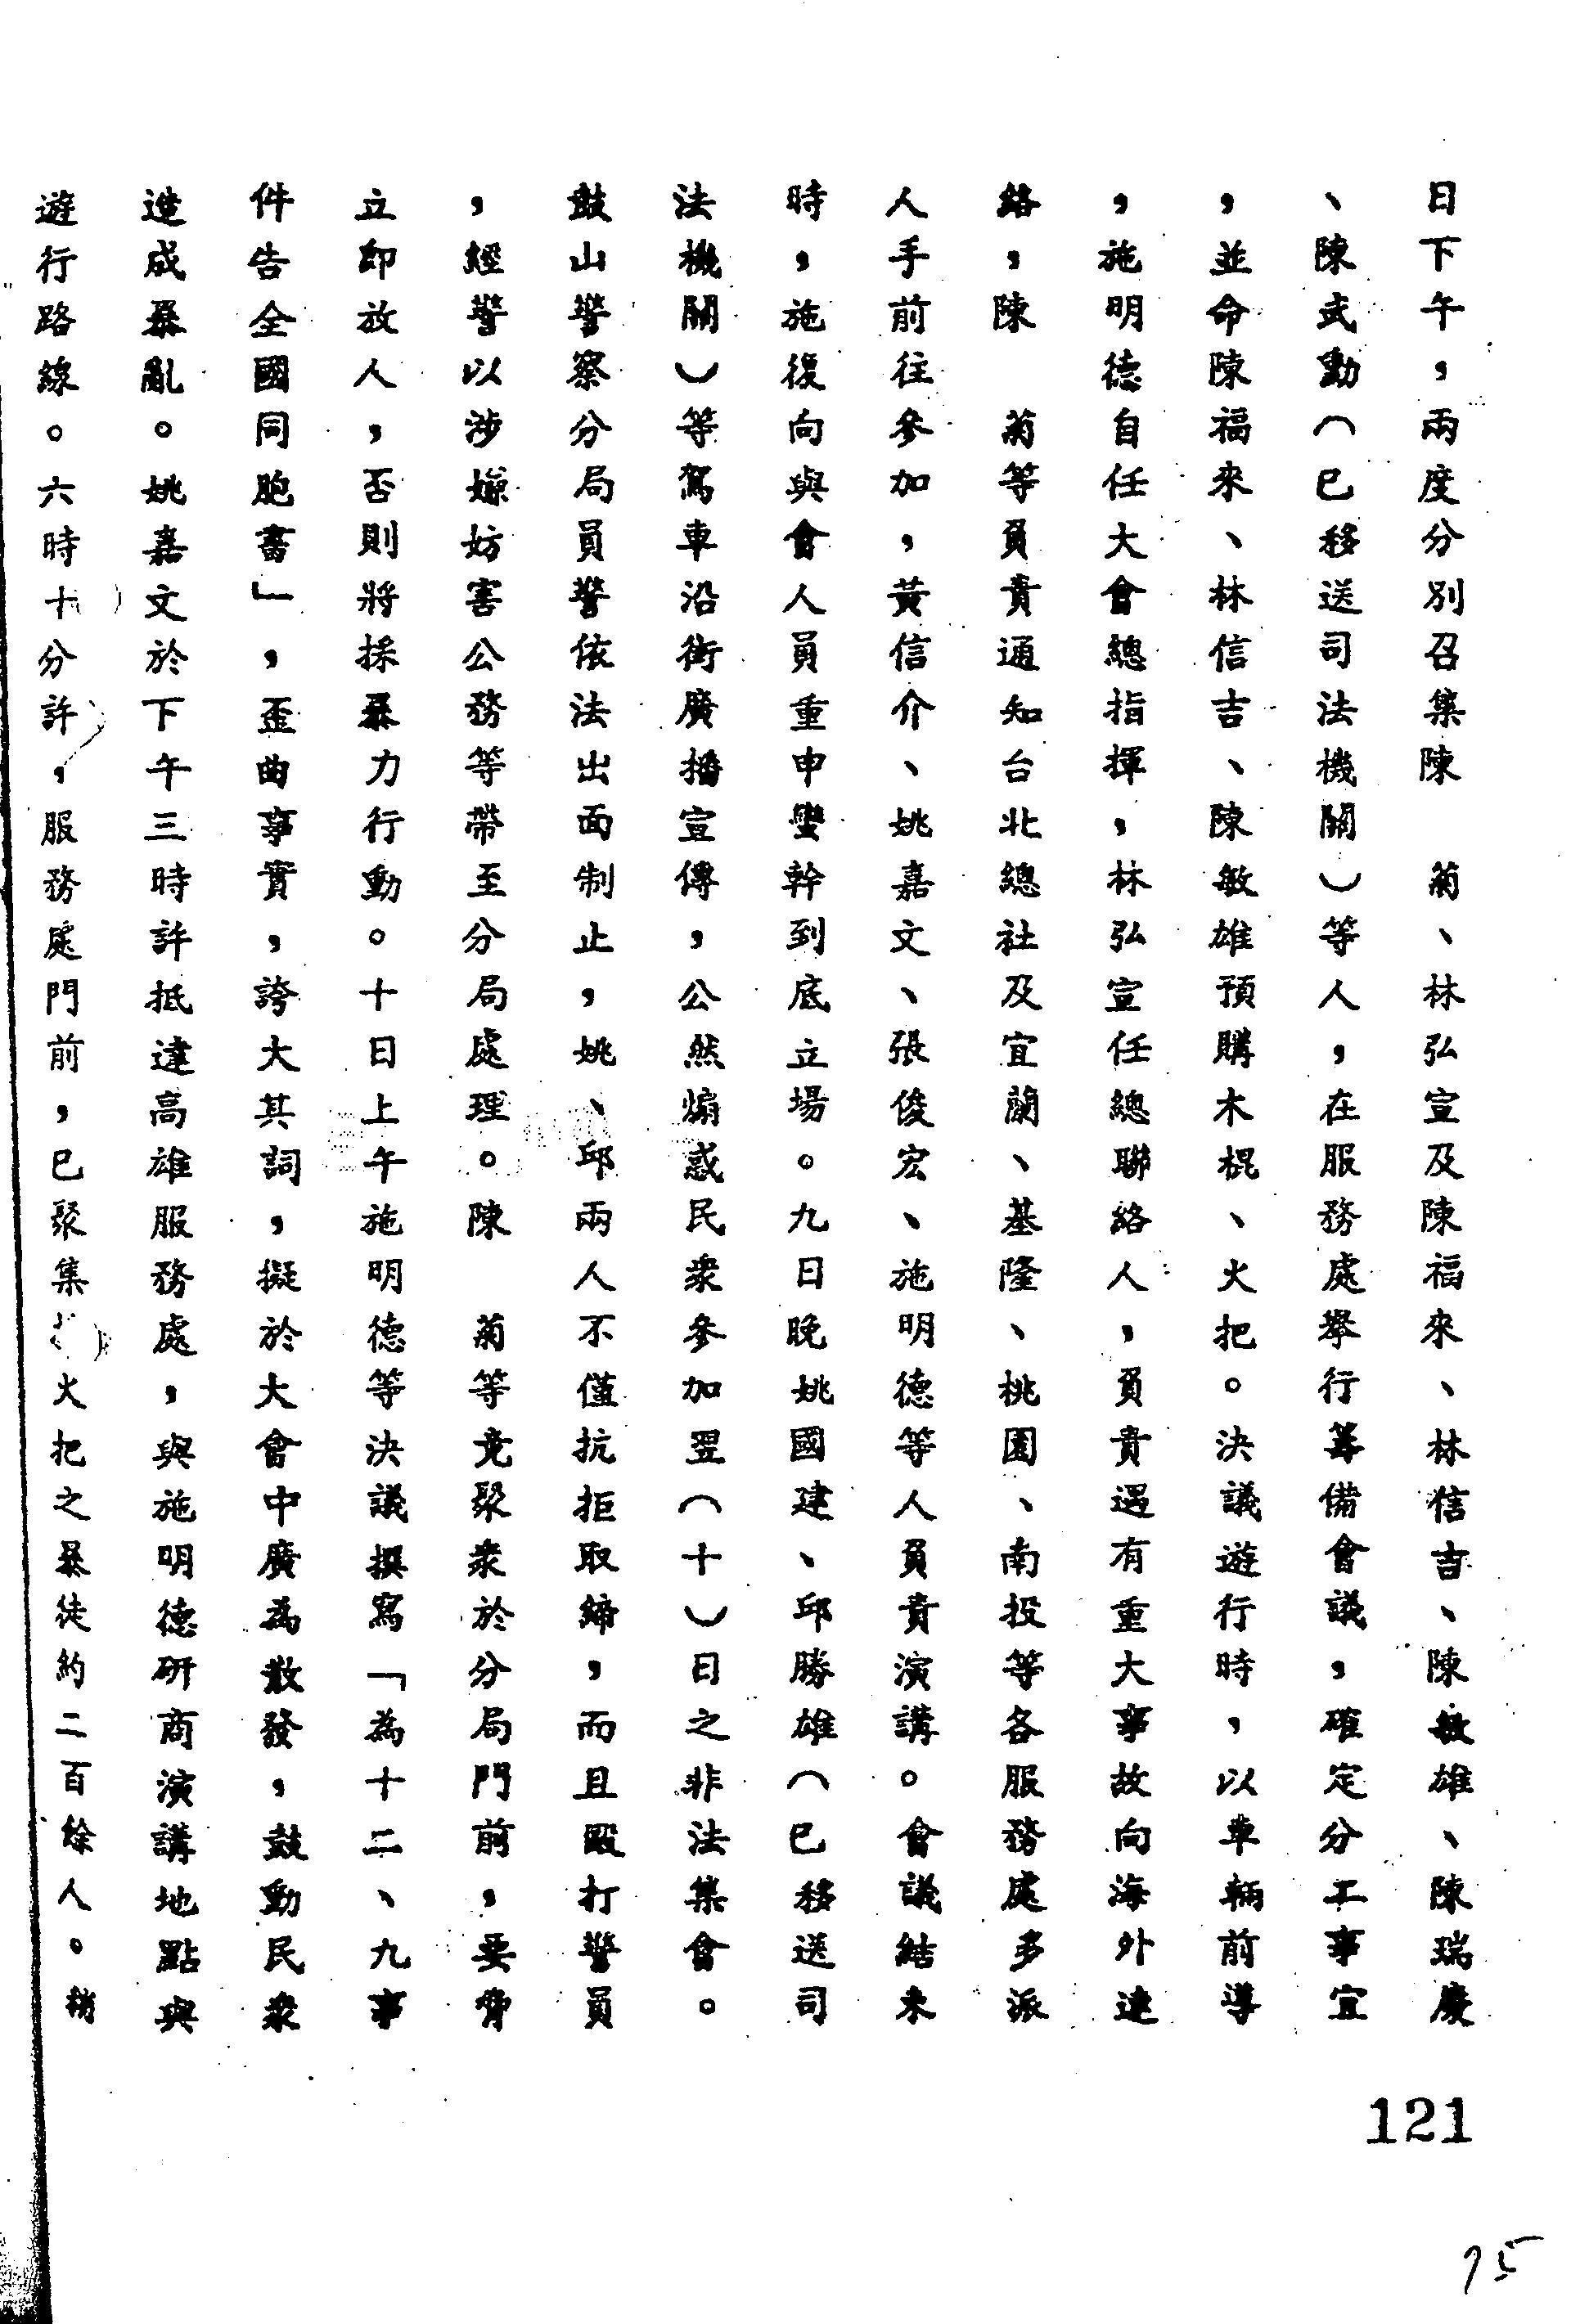 日下午，兩度分別召集陳　菊、林弘宣及陳福來、林信吉、陳敏雄、陳瑞慶
、陳武勳（已移送司法機關）等人，在服務處舉行籌備會議，確定分工事宜
，並命陳福來、林信吉、陳敏雄預購木棍、火把。決議遊行時，以車輛前導
，施明德自任大會總指揮，林弘宣任總聯絡人，負責遇有重大事故向海外連
絡，陳　菊等負責通知台北總社及宜蘭、基隆、桃園、南投等各服務處多派
人手前往參加，黃信介、姚嘉文、張俊宏、施明德等人負責演講。會議結束
時，施復向與會人員重申蠻幹到底立場。九日晚姚國建、邱勝雄（已移送司
法機關）等駕車沿街廣播宣傳，公然煽惑民眾參加翌（十）日之非法集會。
鼓山警察分局員警依法出面制止，姚、邱兩人不僅抗拒取締，而且毆打警員
，經警以涉嫌妨害公務等帶至分局處理。陳　菊等竟聚眾於分局門前，要脅
立即放人，否則將採暴力行動。十日上午施明德等決議撰寫「為十二、九事
件告全國同胞書」，歪曲事實，誇大其詞，擬於大會中廣為散發，鼓動民眾
造成暴亂。姚嘉文於下午三時許抵達高雄服務處，與施明德研商演講地點與
遊行路線。六時十分許，服務處門前，已聚集火把之暴徒約二百餘人。稍
121
75